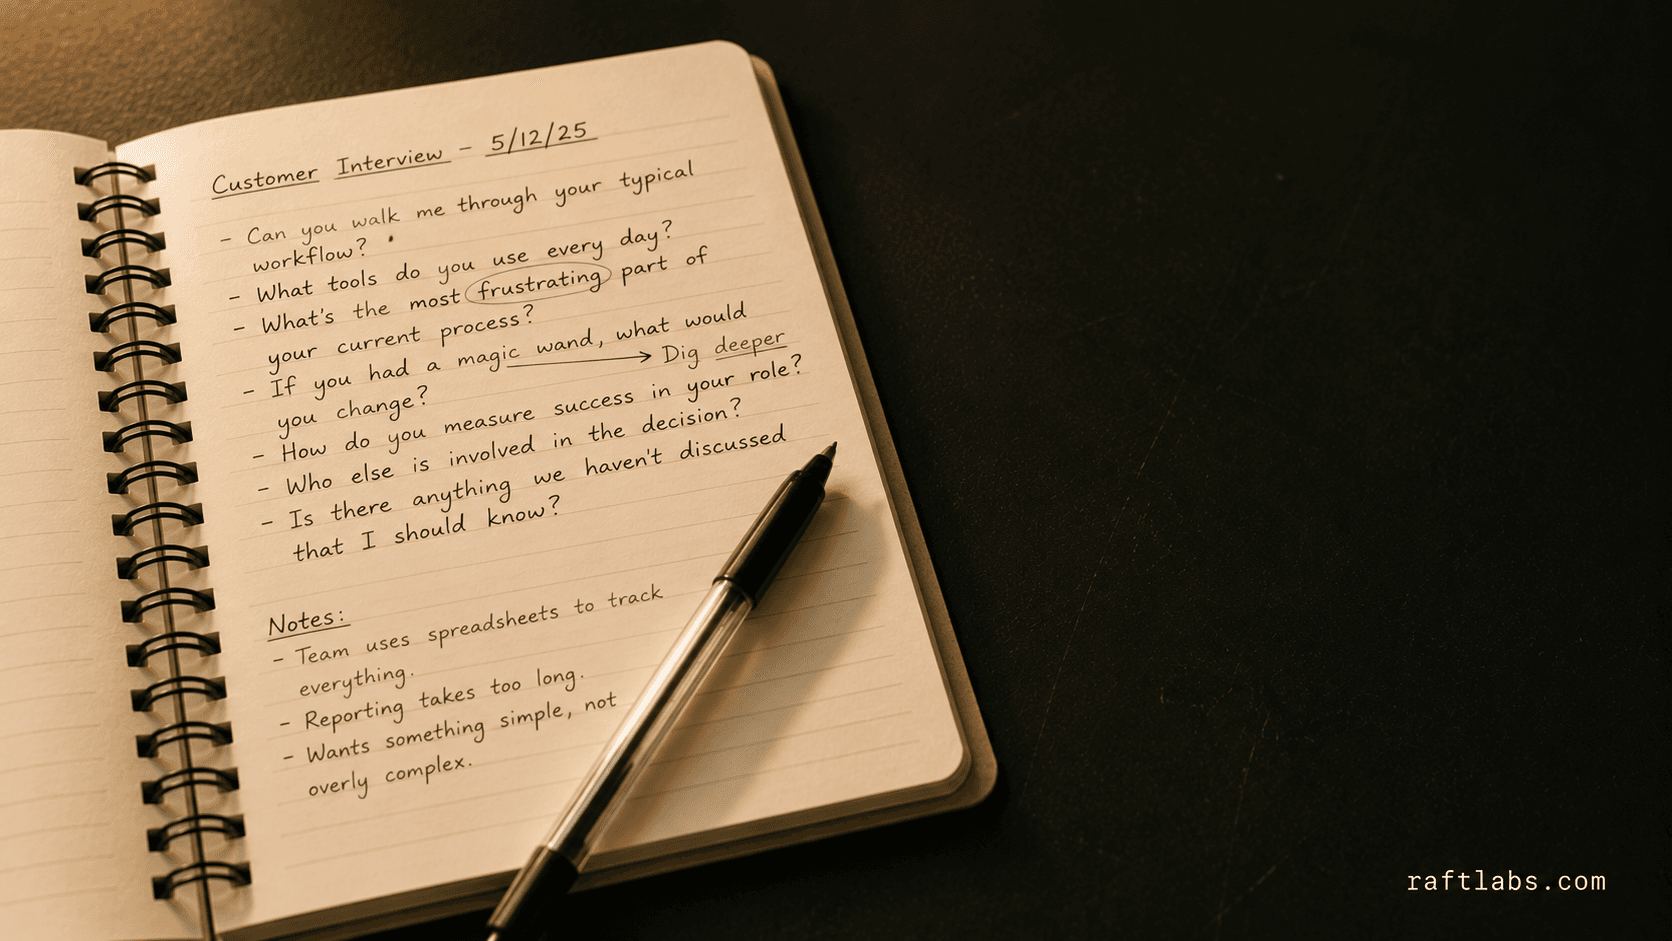 Customer Interview - 5/12/25
- Can you walk me through your typical
workflow?
- What tools do you use every day?
- What's the most frustrating part of
your current process?
- If you had a magic wand, what would
→ Dig deeper
you change?
- How do you measure success in your role?
- Who else is involved in the decision?
- Is there anything we haven't discussed
that I should know?
Notes:
- Team uses spreadsheets to track
everything.
- Reporting takes too long.
- Wants something simple, not
overly complex.
raftlabs.com